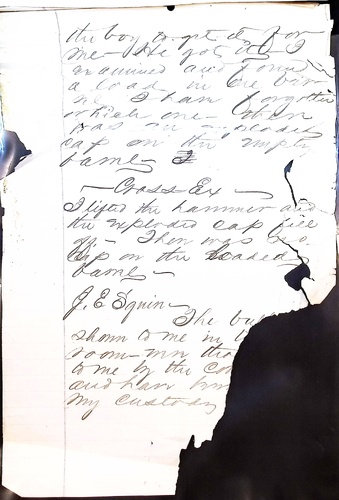 the boy to get it for
me - He got it & I
examined and found
a load in one bar-
rel I have forgotten
which one - there
was an exploded
cap on the empty
barrel -
- Cross Ex -
I lifted the hammer and
the exploded cap fell
off - There was no
cap on the loaded
barrel -
J. E. Squin
The bu
shown to me in
room - me
to me by the Co
and have
my custody